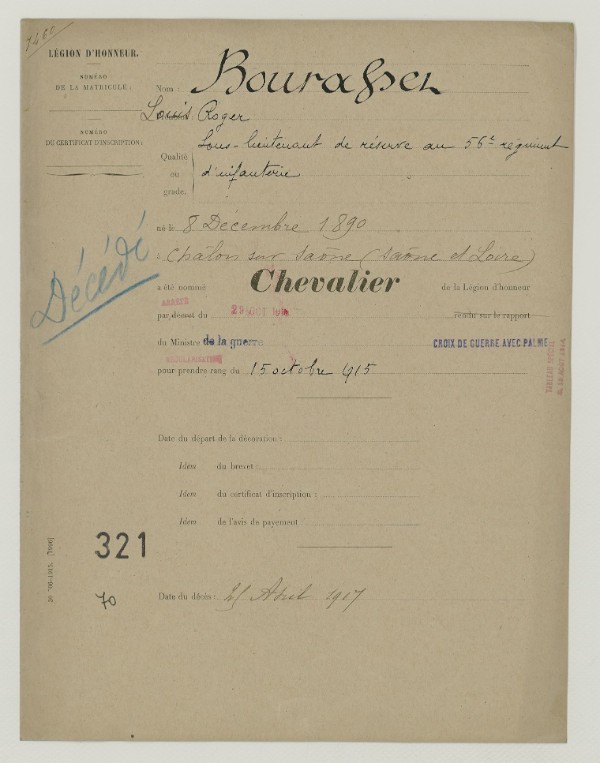 LÉGION D'HONNEUR.
NUMÉRO
DE LA MATRICULE:
NUMÉRO
DU CERTIFICAT D'INSCRIPTION:
Nom:
Louis Roger
Qualité
ou
grade.
Sous-lieutenant de réserve au 56e régiment
d'infanterie
né le 8 Décembre 1890
à Châlon sur Saône (Saône et Loire)
Décédé
a été nommé Chevalier de la Légion d'honneur
ARRÊTÉ
par décret du 29 OCT rendu sur le rapport
du Ministre de la guerre CROIX DE GUERRE AVEC PALME
pour prendre rang du 15 octobre 1915
Date du départ de la décoration:
Idem du brevet:
Idem du certificat d'inscription:
Idem de l'avis de payement
321
70
Date du décès: Avril 1917